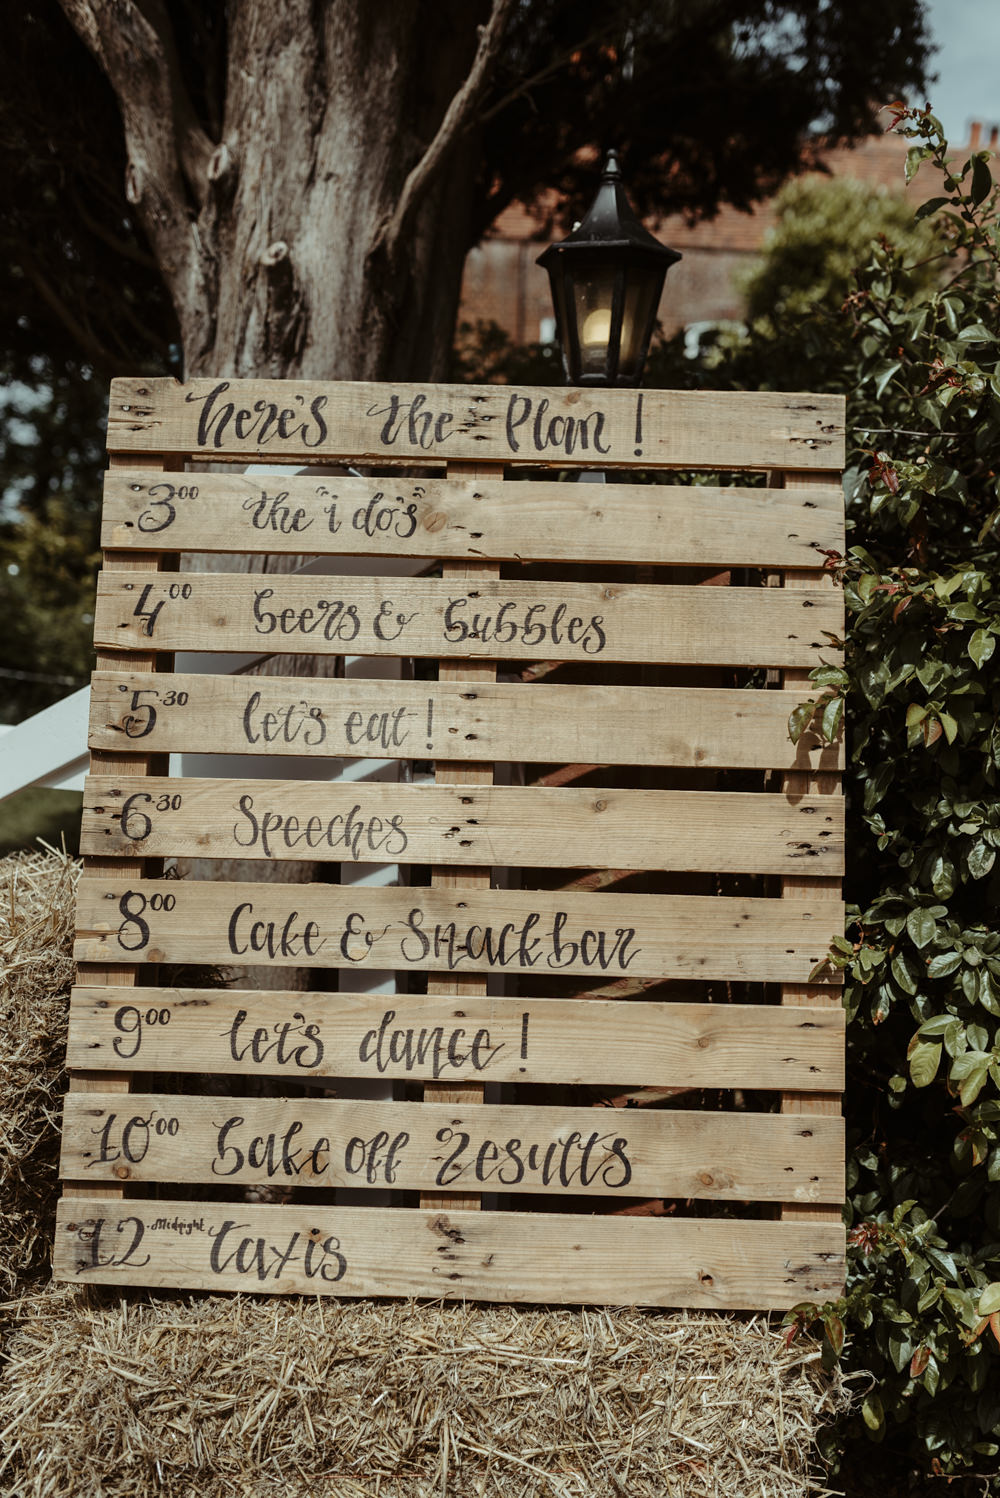 here's the Plan!
3.00 the "i do's"
4.00 beers & bubbles
5.30 let's eat!
6.30 Speeches
8.00 Cake & Snack bar
9.00 let's dance!
10.00 bake off Results
12 Midnight taxis